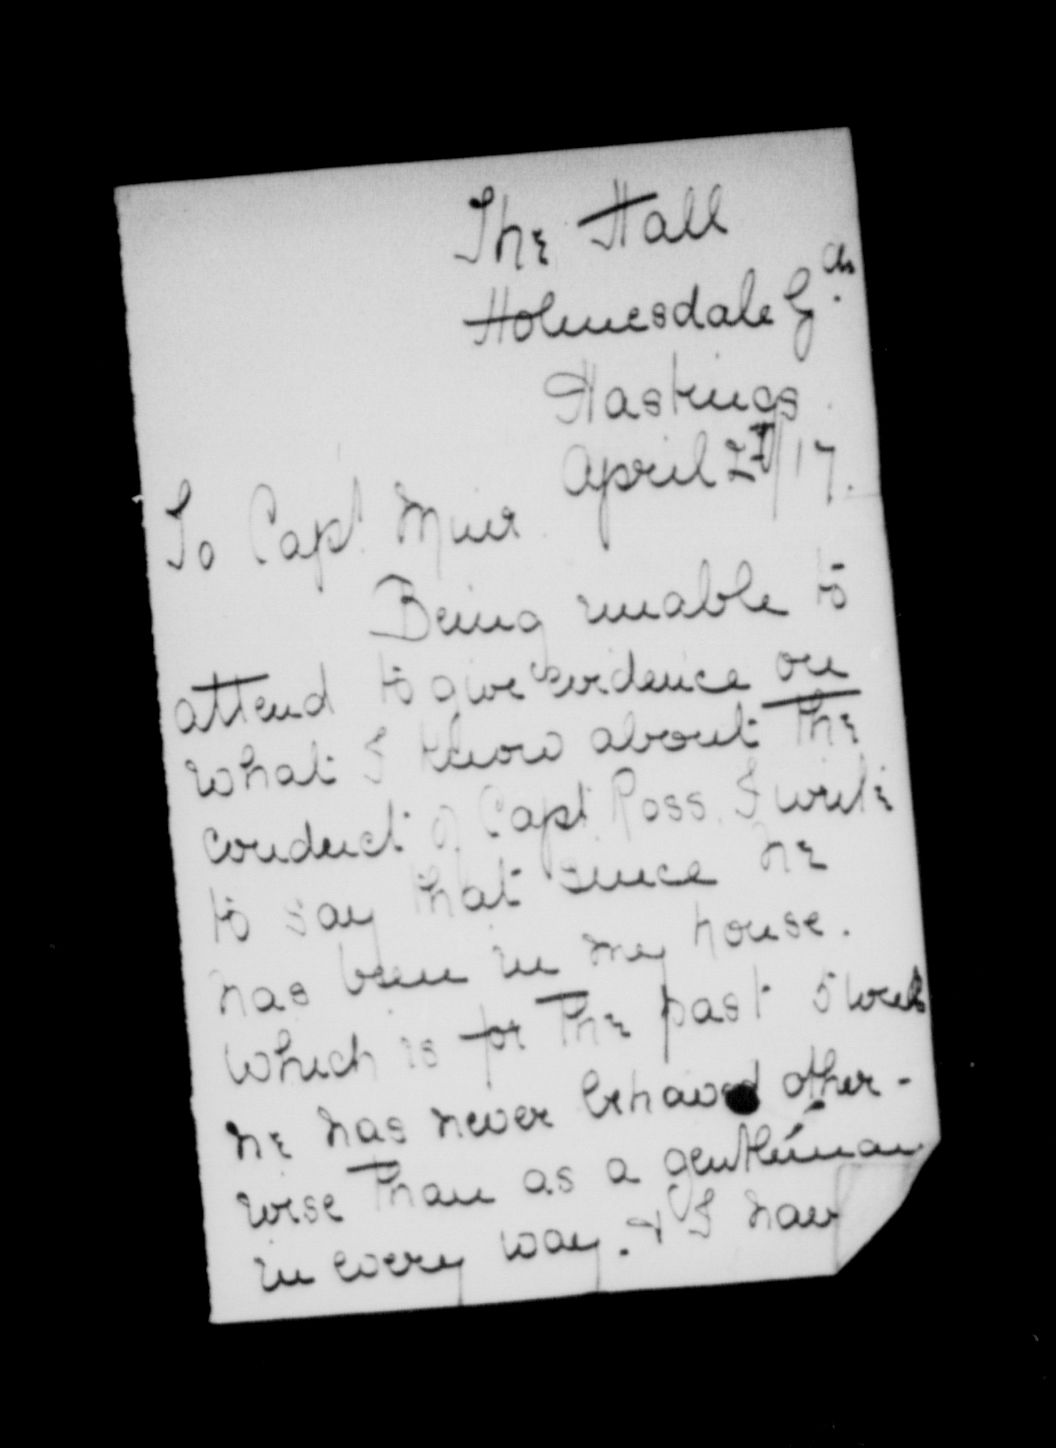 The Hall
Holmesdale Gdn.
Hastings
April 27/17.
To Capt. Muir.
Being unable to
attend to give evidence on
what I know about the
conduct of Capt. Ross, I write
to say that since he
has been in my house.
which is for the past 5 weeks
he has never behaved other-
wise than as a gentleman
in every way. & I have